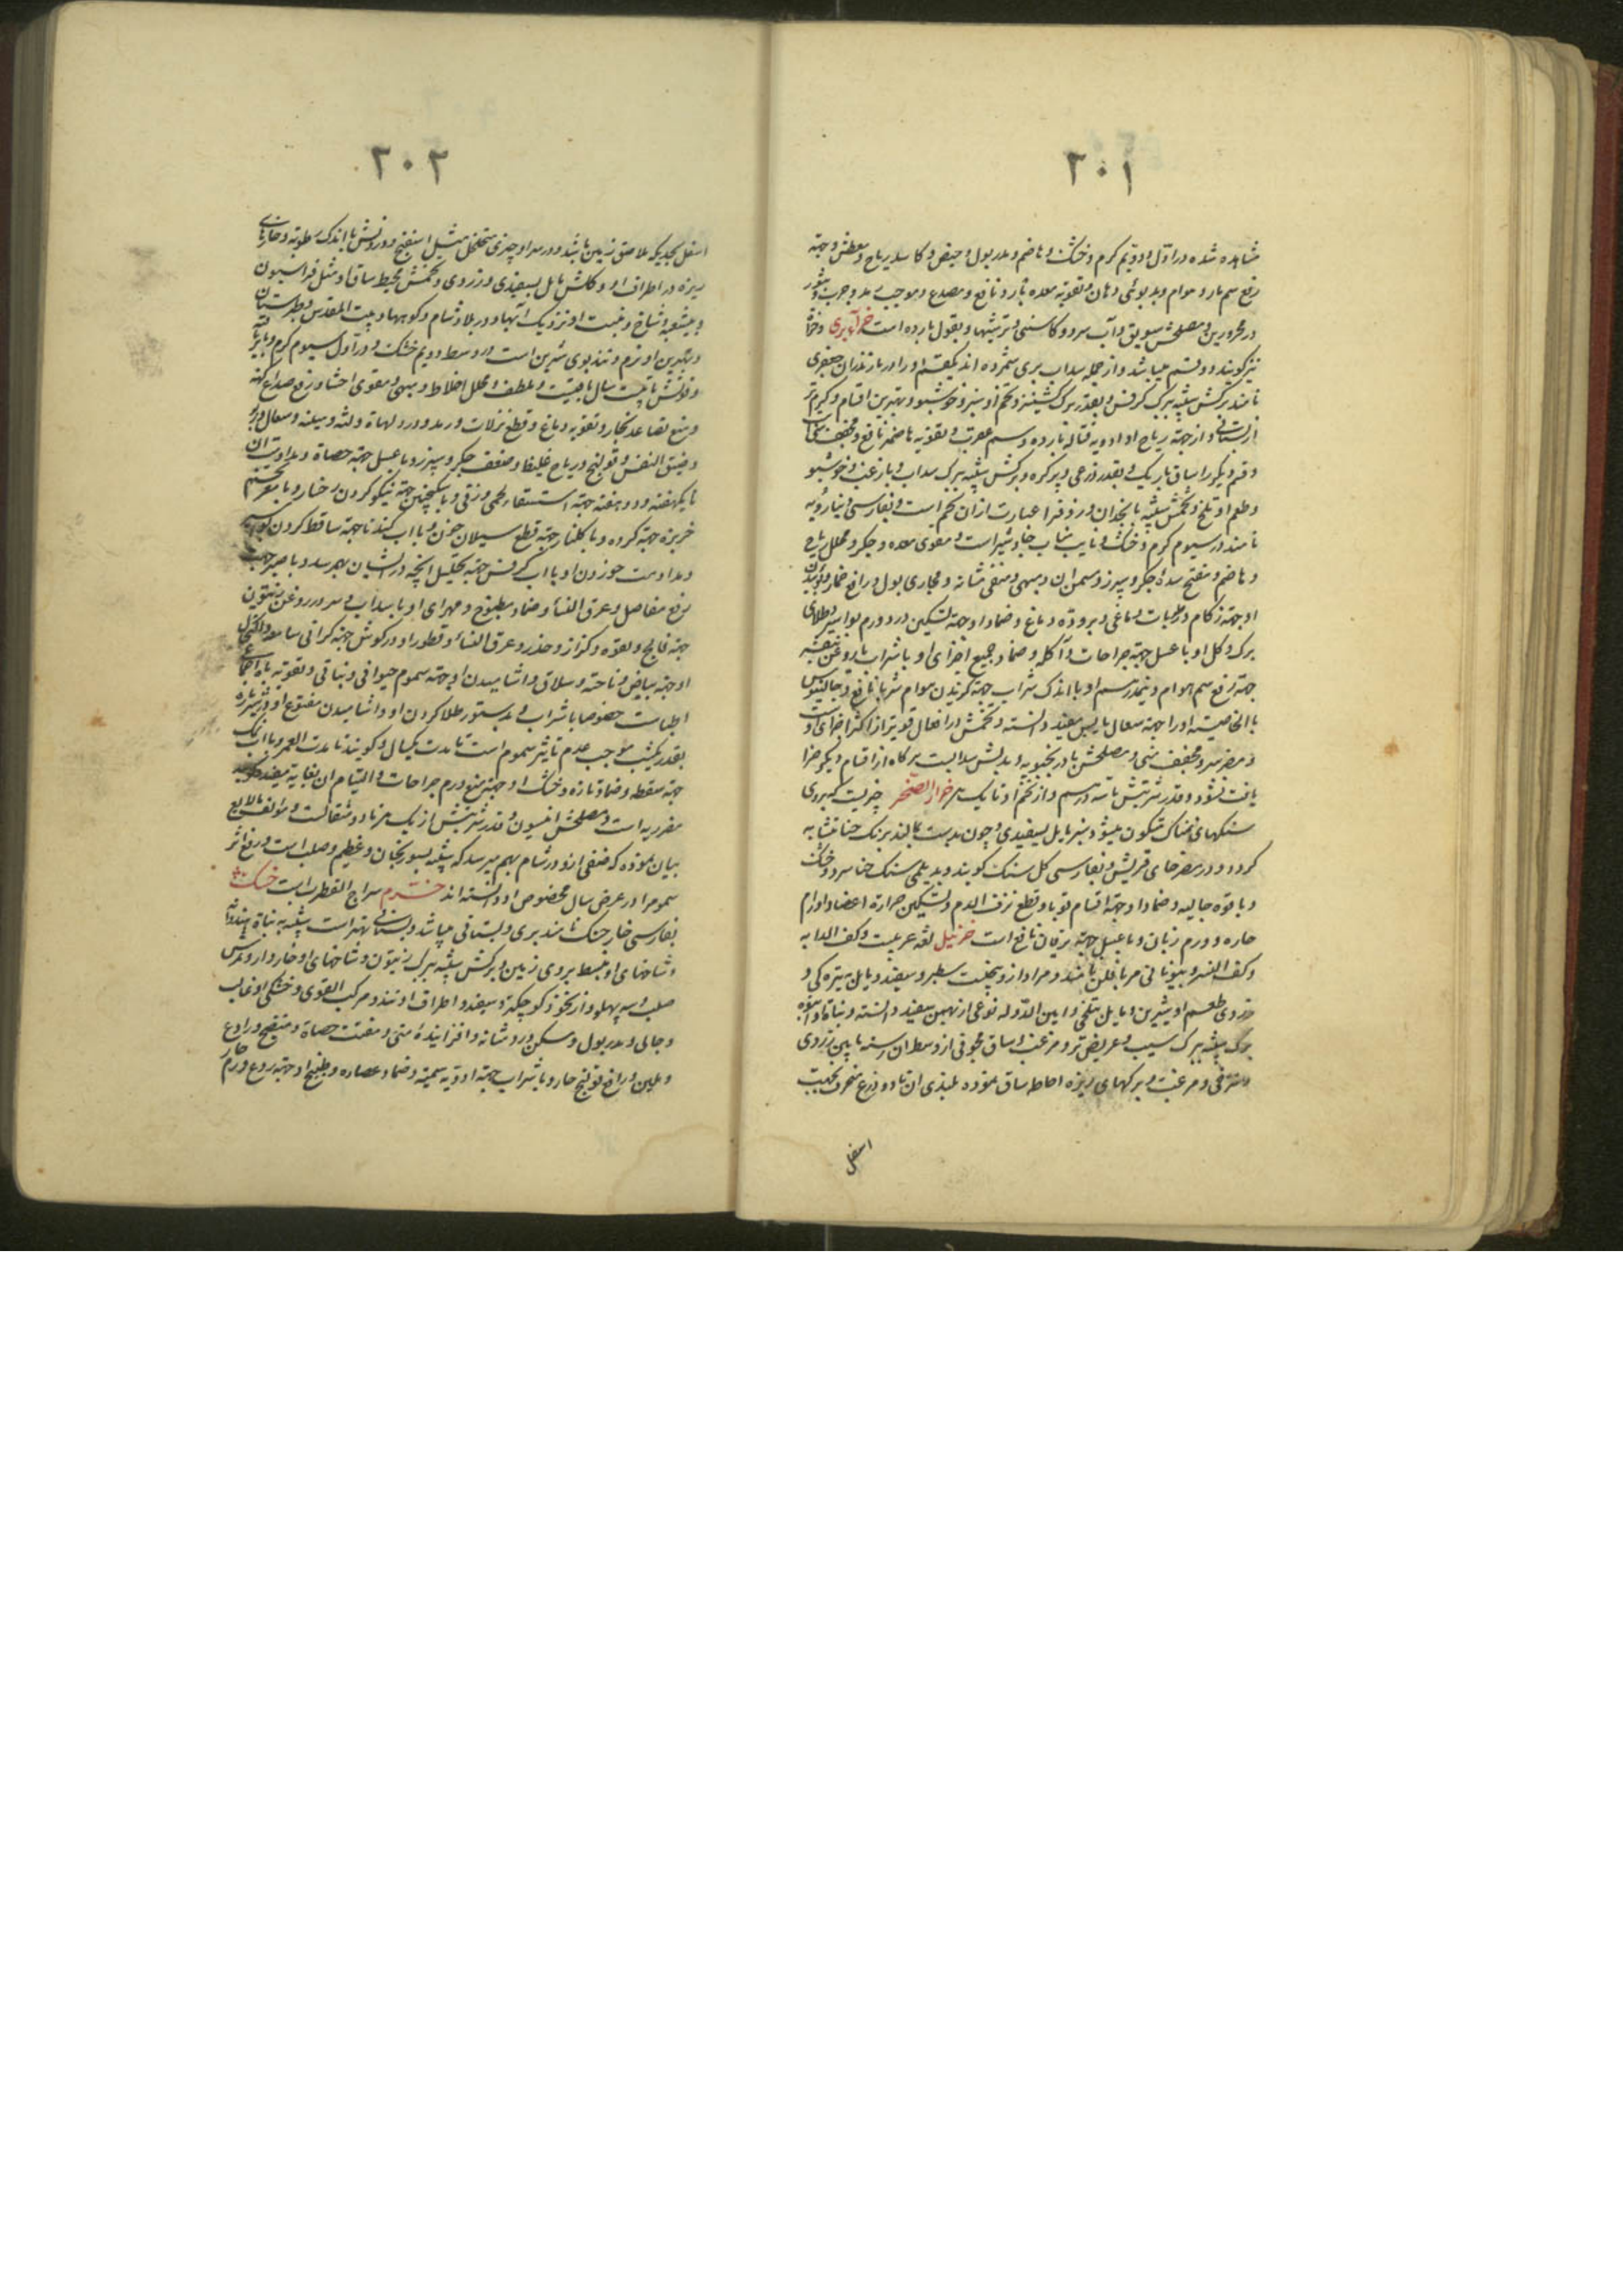 ٢٠١
مشاهده شده در اول و دویم کرم و خشک و هاضم و مدر بول و حیض و کاسر ریاح و معطش و جهة
رفع سم مار و هوام و بدبوئی دهان و تقویة معده بارد نافع و مصدع و موجب رمد و جرب و بثور
در محرورین و مصلحش سویق و آب سرد و کاسنی و ترشیها و بقول بارده است
نیز کویند و دو قسم میباشد و از جمله سداب بری شمرده اند یکقسم او را در مازندران جعفری
نامند برکش شبیه ببرک کرفس و بقدر برک کشنیز و تخم او سبز و خوشبو و بهترین اقسام و کرم تر
از بستانی و از جهة ریاح او ادویه قتاله بارده و سم عقرب و تقویة هاضمه نافع و مجفف منی است
و قسم دیکر را ساق باریک و بقدر ذرعی و پر کره و برکش شبیه ببرک سداب و با زغب و خوشبو
و طعم او تلخ و تخمش شبیه بانجدان و زوفرا عبارت از ان تخم است و بفارسی
نامند در سیوم کرم و خشک و نایب مناب جاوشیر است و مقوی معده و جکر و محلل ریاح
و هاضم و مفتح سدهٔ جکر و سپرز و مسمن ان و مبهی و منقی مثانه و مجاری بول و رافع خمار و بوئیدن
او جهة زکام و رطوبات دماغی و برودة دماغ و ضماد او جهة تسکین درد و ورم بواسیر و طلای
برک و کل او با عسل جهة جراحات و آکله و ضماد جمیع اجزای او با شراب یا روغن بنفشه
جهة رفع سم هوام و نیمدرهم او با اندک شراب جهة کزیدن هوام شربا نافع و جالینوس
بالخاصیة او را جهة سعال یابس مفید دانسته و تخمش در افعال قویتر از اکثر اجزای اوست
و مضر سر و مجفف منی و مصلحش بادرنجبویه و بدلش سدابست هر کاه از اقسام دیکر جزا
یافت نشود و قدر شربتش تا سه درهم و از تخم او تا یک درهم خزاز الصخر چیزیست که بر روی
سنکهای نمناک متکون میشود سبز مایل بسفیدی و چون بدست بمالند برنک حنا مشابه
کردد و در مصر حنای قریش و بفارسی کل سنک کویند و بدیلمی سنک حنا سرد و خشک
و با قوه جالیه و ضماد او جهة اقسام قوبا و قطع نزف الدم و تسکین حرارة اعضا و اورام
حاره و ورم زبان و با عسل جهة یرقان نافع است خزنبل لغة عربیست و کف الدابه
و کف النسر و بیونانی مریافلن نامند و مراد از و بیخیست سطبر و سفید و مایل بتیره کی و
زردی طعم او شیرین و مایل بتلخی و امین الدوله نوعی از بهمن سفید دانسته و نباة او انبوه
برک شبیه ببرک سیب و عریض تر و مزغب و ساق مجوفی از وسط ان رسته مایل بزردی
و مزغب و برکهای ریزه احاطه ساق نموده بلندی ان تا دو ذرع منحرف بجهت
اسفل
٢٠٢
اسفل بحدیکه ملاصق زمین باشد و در سر او چیزی متخلخل مثل اسفنج و درونش با اندک رطوبة و خارهای
ریزه در اطراف او و کلش مایل بسفیدی و زردی و تخمش محیط ساق او مثل فراسیون
و بیشعبه و شاخ و منبت او نزدیک آبها و در بلاد شام و کوهها و بیت المقدس و طبرستان
و بهترین او نرم و تندبوی شیرین است در وسط دویم خشک و در اول سیوم کرم و با تریاقیة
و قوتش تا بیست سال باقیست و ملطف و محلل اخلاط و مبهی و مقوی احشا و رافع صداع کهنه
و منع تصاعد بخار و تقویة دماغ و قطع نزلات و رمد و درد لهاة و لثه و سینه و سعال و ربو
و ضیق النفس و قولنج و ریاح غلیظه و ضعف جکر و سپرز و با عسل جهة حصاة و مداومت ان
تا یکهفته و دو هفته جهة استسقاء لحمی و زقی و با سکنجبین جهة نیکو کردن رخسار و با تخم
خربزه جهة کرده و با کلنار جهة قطع سیلان خون و با اب کندنا جهة ساقط کردن بواسیر
و مداومت خوردن او با اب کرفس جهة تحلیل انچه در انثیان بهم رسد و با صبر جهت
رفع مفاصل و عرق النسا و ضماد مطبوخ و مهرای او با سداب و سرو در روغن زیتون
جهة فالج و لقوه و کزاز و خدر و عرق النسا و قطور او در کوش جهة کرانی سامعه و اکتحال
او جهة بیاض و ناخنه و سلاق و اشامیدن او جهة سموم حیوانی و نباتی و تقویة باه باجماع
اطباست خصوصا با شراب و بدستور طلا کردن او و اشامیدن منقوع او در شیر تازه
بقدر یکشب موجب عدم تاثیر سموم است تا مدت یکسال و کویند تا مدت العمر و با اب نمک
جهة سقطه و ضماد تازه و خشک او جهة منع ورم جراحات و التیام ان بغایة مفید
مضر ریه است و مصلحش انیسون و قدر شربتش از یک درهم تا دو مثقالست و مولف مالایسع
بیان نموده که صنفی از و در شام بهم میرسد که شبیه بسورنجان و عظیم و صلب است و رفع اثر
سموم را در عرض سال مخصوص او دانسته اند خسترم سراج القطرب است خسک
بفارسی خارخسک نامند بری و بستانی میباشد و بستانی بهتر است شبیه بنباة هندوانه
و شاخهای او منبسط بر روی زمین و برکش شبیه ببرک زیتون و شاخهای او خاردار و ثمرش
صلب و سه پهلو و از نخود کوچکتر و سفید و اطراف او تند و مرکب القوی و خشکی او غالب
و جالی و مدر بول و مسکن درد مثانه و افزایندهٔ منی و مفتت حصاة و منضج و رادع
و ملین و رافع قولنج حار و با شراب جهة ادویه سمیه و ضماد عصاره و طبیخ او جهة ردع ورم حار